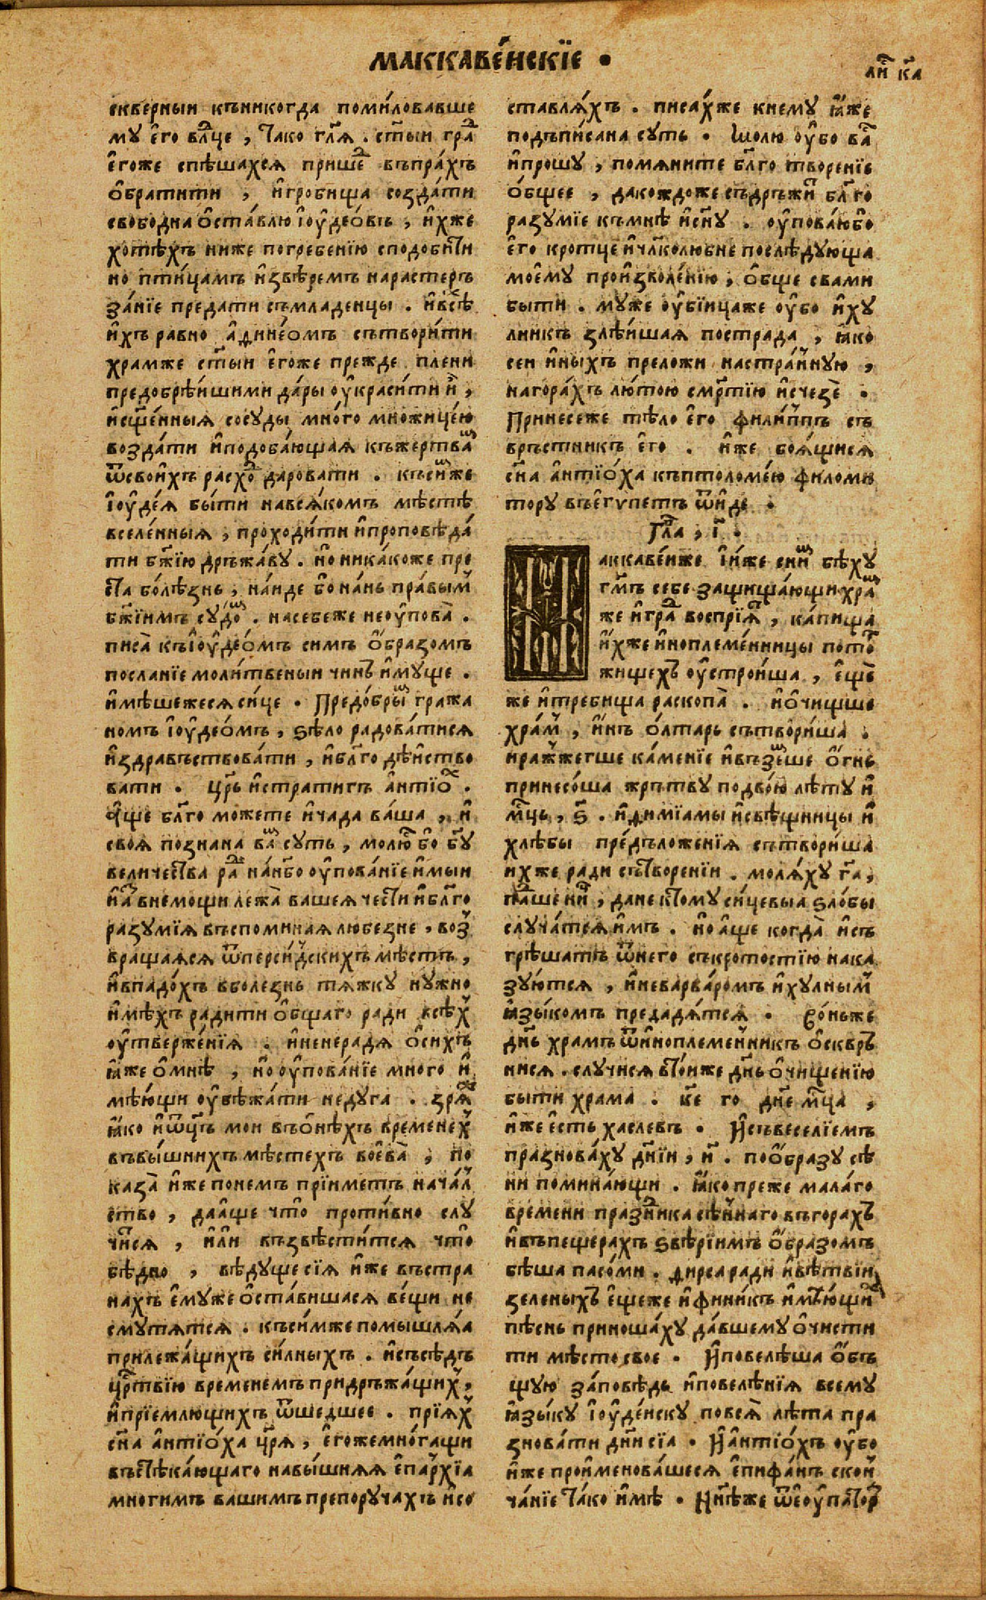 МАККАВЕ́ИСКІЕ .
ли҇ ка҃
скверныи къникогда поми́ловавше
му є҆го влⷣце , Та́ко гл҃ѧ . ст҃ыи граⷣ
є҆гоже спѣшахсѧ прише́ въпра́хъ
ѻ҆братити , и҆гробища созда́ти
свободна ѻ҆ста́влю і҆ѹ҆део́въ , и҆́хже
хотѣ́хъ ниже погребенїю сподо́бити
но пти́цамъ и҆ѕвѣ́ремъ нарастерѕ
за́нїе предати съмладенцы . и҆всѣ̀
и҆хъ равно а҆ѳинео́мъ сътвори́ти
храмже ст҃ыи є҆гоже прежде плени
предобрѣ́ишими да́ры ѹ҆краси́ти и҆̀ ,
и҆сщ҃е́нныѧ сосуды мно́го мно́жицею
возда́ти и҆подоба́ющаѧ къже́ртваⷨ
ѿсвои́хъ расхо́ⷣ даровати . къси́мже
і҆ѹ҆де́ѧ бы́ти навсѧ́комъ мѣ́стѣ
вселе́нныѧ , проходи́ти и҆проповѣда́
ти бж҃їю дръжа́ву . но никакоже пре
ста бо́лѣзнь , на́иде бо на́нь пра́выⷨ
бж҃їимъ судо́ⷨ . насебеже неѹ҆пова̀ .
писа̀ къі҆ѹ҆део́мъ симъ ѻ҆́бразомъ
посланїе моли́твеныи чинъ и҆му́ще .
и҆мѣ́шежесѧ си́це . Предо́брыⷨ гражда
номъ і҆ѹ҆део́мъ , ѕѣло радоватисѧ
и҆здравъствова́ти , и҆бл҃го дѣ́иство
вати . цр҃ь и҆страти́гъ а҆нтїо́ⷯ .
А҆́ще бл҃го мо́жете и҆ча́да ва́ша , и҆
своѧ̀ познана ва́ⷨ суть , молю́ бо бг҃у
вели́чества раⷣ на́нбо ѹ҆пова́нїе и҆мыи
и҆а҆́з внемощи лежа̀ вашеѧ че́сти и҆бл҃го
разумїѧ въспоминаѧ любезне , воз
враща́ѧсѧ ѿперси́дскихъ мѣстъ ,
и҆впадо́хъ вболезнь тѧ́жку ну́жно
и҆мѣ́хъ радити ѻ҆́бщаго ради всѣ́ⷯ
ѹ҆тверже́нїѧ . и҆ненерадѧ̀ ѻ҆сихъ
ꙗ҆́же ѻ҆мнѣ̀ , но ѹ҆пова́нїе много и҆
мѣ́ющи ѹ҆бѣжати недуга . зрѧ̀
ꙗ҆́ко и҆ѻ҆ц҃ъ мои въо́нѣхъ временеⷯ
въвы́шнихъ мѣстехъ воева̀ , по
каза̀ и҆же понемъ прїиметъ нача́ⷧ
ство , даа҆ще что̀ проти́вно слу
чи́сѧ , и҆лѝ възвѣсти́тсѧ что̀
бѣдно , вѣдуще сїѧ и҆же въстра
нахъ є҆муже ѻ҆ста́вишасѧ ве́щи не
сму́тѧтсѧ . къси́мже помышлѧ́ѧ
прилежа́щихъ си́лныхъ . и҆съсѣ́дъ
црⷭ҇твїю временемъ придръжа́щиⷯ ,
и҆прїемлющихъ ѿшедшее . прїѧⷯ
сн҃а а҆нтїо́ха цр҃ѧ , є҆гожемно́гащи
въстѣка́ющаго навы́шнѧѧ є҆па́рхїа
мно́гимъ ва́шимъ препоруча́хъ и҆со
ставлѧ́хъ . писа́хже кнему ꙗ҆́же
подъпи́сана суть . Молю ѹ҆́бо ваⷭ
и҆прошу , помѧните бл҃го творенїе
ѻ҆́бщее , дакождоже съдръжи́т бл҃го
разумїе къмнѣ̀ и҆сн҃у . ѹ҆пова́юбо
є҆го кротце и҆чл҃колюбне послѣдующа
моему прои҆зволе́нїю , ѻ҆бще свами
быти . муже ѹ҆бїицаже ѹ҆́бо и҆ху́
лникъ злѣ́ишая пострада , ꙗ҆́ко
сеи и҆ны́хъ преложи настра́нную ,
нагора́хъ лю́тою сме́ртїю и҆счезе .
Принесеже тѣло є҆го фили́ппъ съ
връстникъ є҆го . и҆́же боѧ́щисѧ
сн҃а а҆нтїо́ха къптоломе́ю филоми
тору въе҆гѵпетъ ѿи҆де .
Гла҃ , і҃ .
аккаве́иже і҆и҆́же сни́мъ бѣ́ху
гд҃мъ себе защища́ющимъ хра́ⷨ
же и҆граⷣ воспрїѧ̀ , ка́пища
и҆́хже и҆ноплеме́нницы пото́
жищехъ ѹ҆строи́ша , є҆ще
же и҆требища раскопа̀ . и҆ѻ҆чищше
храⷨ , и҆́нъ ѻ҆лтарь сътвори́ша .
и҆ражже́гше ка́менїе и҆възе́мше ѻ҆́гнь
принесо́ша жрътву подво́ю лѣ́ту и҆
мц҃ь , ѕ҃ . и҆ѳимїа́мы и҆свѣ́щницы и҆
хлѣ́бы пре́дъложенїѧ сътвори́ша
и҆́хже ради сътворе́нїи . молѧ́ху г҃а ,
па́дше ниⷰ , дане ктому си́цевыа ѕло́бы
случа́тсѧ и҆мъ . но а҆ще когда̀ и҆съ
грѣшатъ ѿнего съкротостїю нака
зу́ютсѧ , и҆нева́рваромъ и҆ху́лныⷨ
ꙗ҆зы́комъ предадѧ́тсѧ . Во́ньже
дн҃ь храмъ ѿи҆ноплеме́нникъ ѻ҆скврь
нисѧ . случи́сѧ вто́иже дн҃ь ѻ҆чище́нїю
быти храма . к҃е го дн҃е мц҃а ,
и҆́же є҆сть хаслевъ . И҆съвеселїемъ
пра́знова́ху дн҃їи , и҃ . поо҆́бразу сѣ́
ни помина́ющи . ꙗ҆́ко преже мала́го
вре́мени пра́здника сѣ́ннаго въгора́хъ
и҆въпещера́хъ ѕвѣрїимъ ѻ҆́бразомъ
бѣ́ша пасо́ми . ѳирсаради и҆вѣ́твїи
зеленыхъ є҆щеже и҆фини́къ и҆мѣ́ющиⷨ
пѣснь приноша́ху да́вшему ѻ҆чисти
ти мѣ́сто свое . И҆повелѣша ѻ҆́бъ
щую за́повѣдь и҆повелѣ́нїѧ всему
ꙗ҆зы́ку і҆ѹ҆де́иску повсѧ̀ лѣ́та пра
зновати дн҃и сїа . И҆а҆нтїо́хъ ѹ҆́бо
и҆́же прои҆меновашесѧ є҆пифа́нъ скон
ча́нїе та́ко и҆мѣ̀ . Нн҃ѣже ѿе҆ѹ҆па́тоⷬ